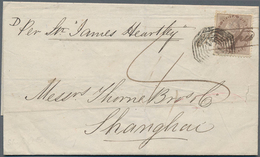 Per Str "James Heartley"
Messrs Thorne Bros & Co
Shanghai